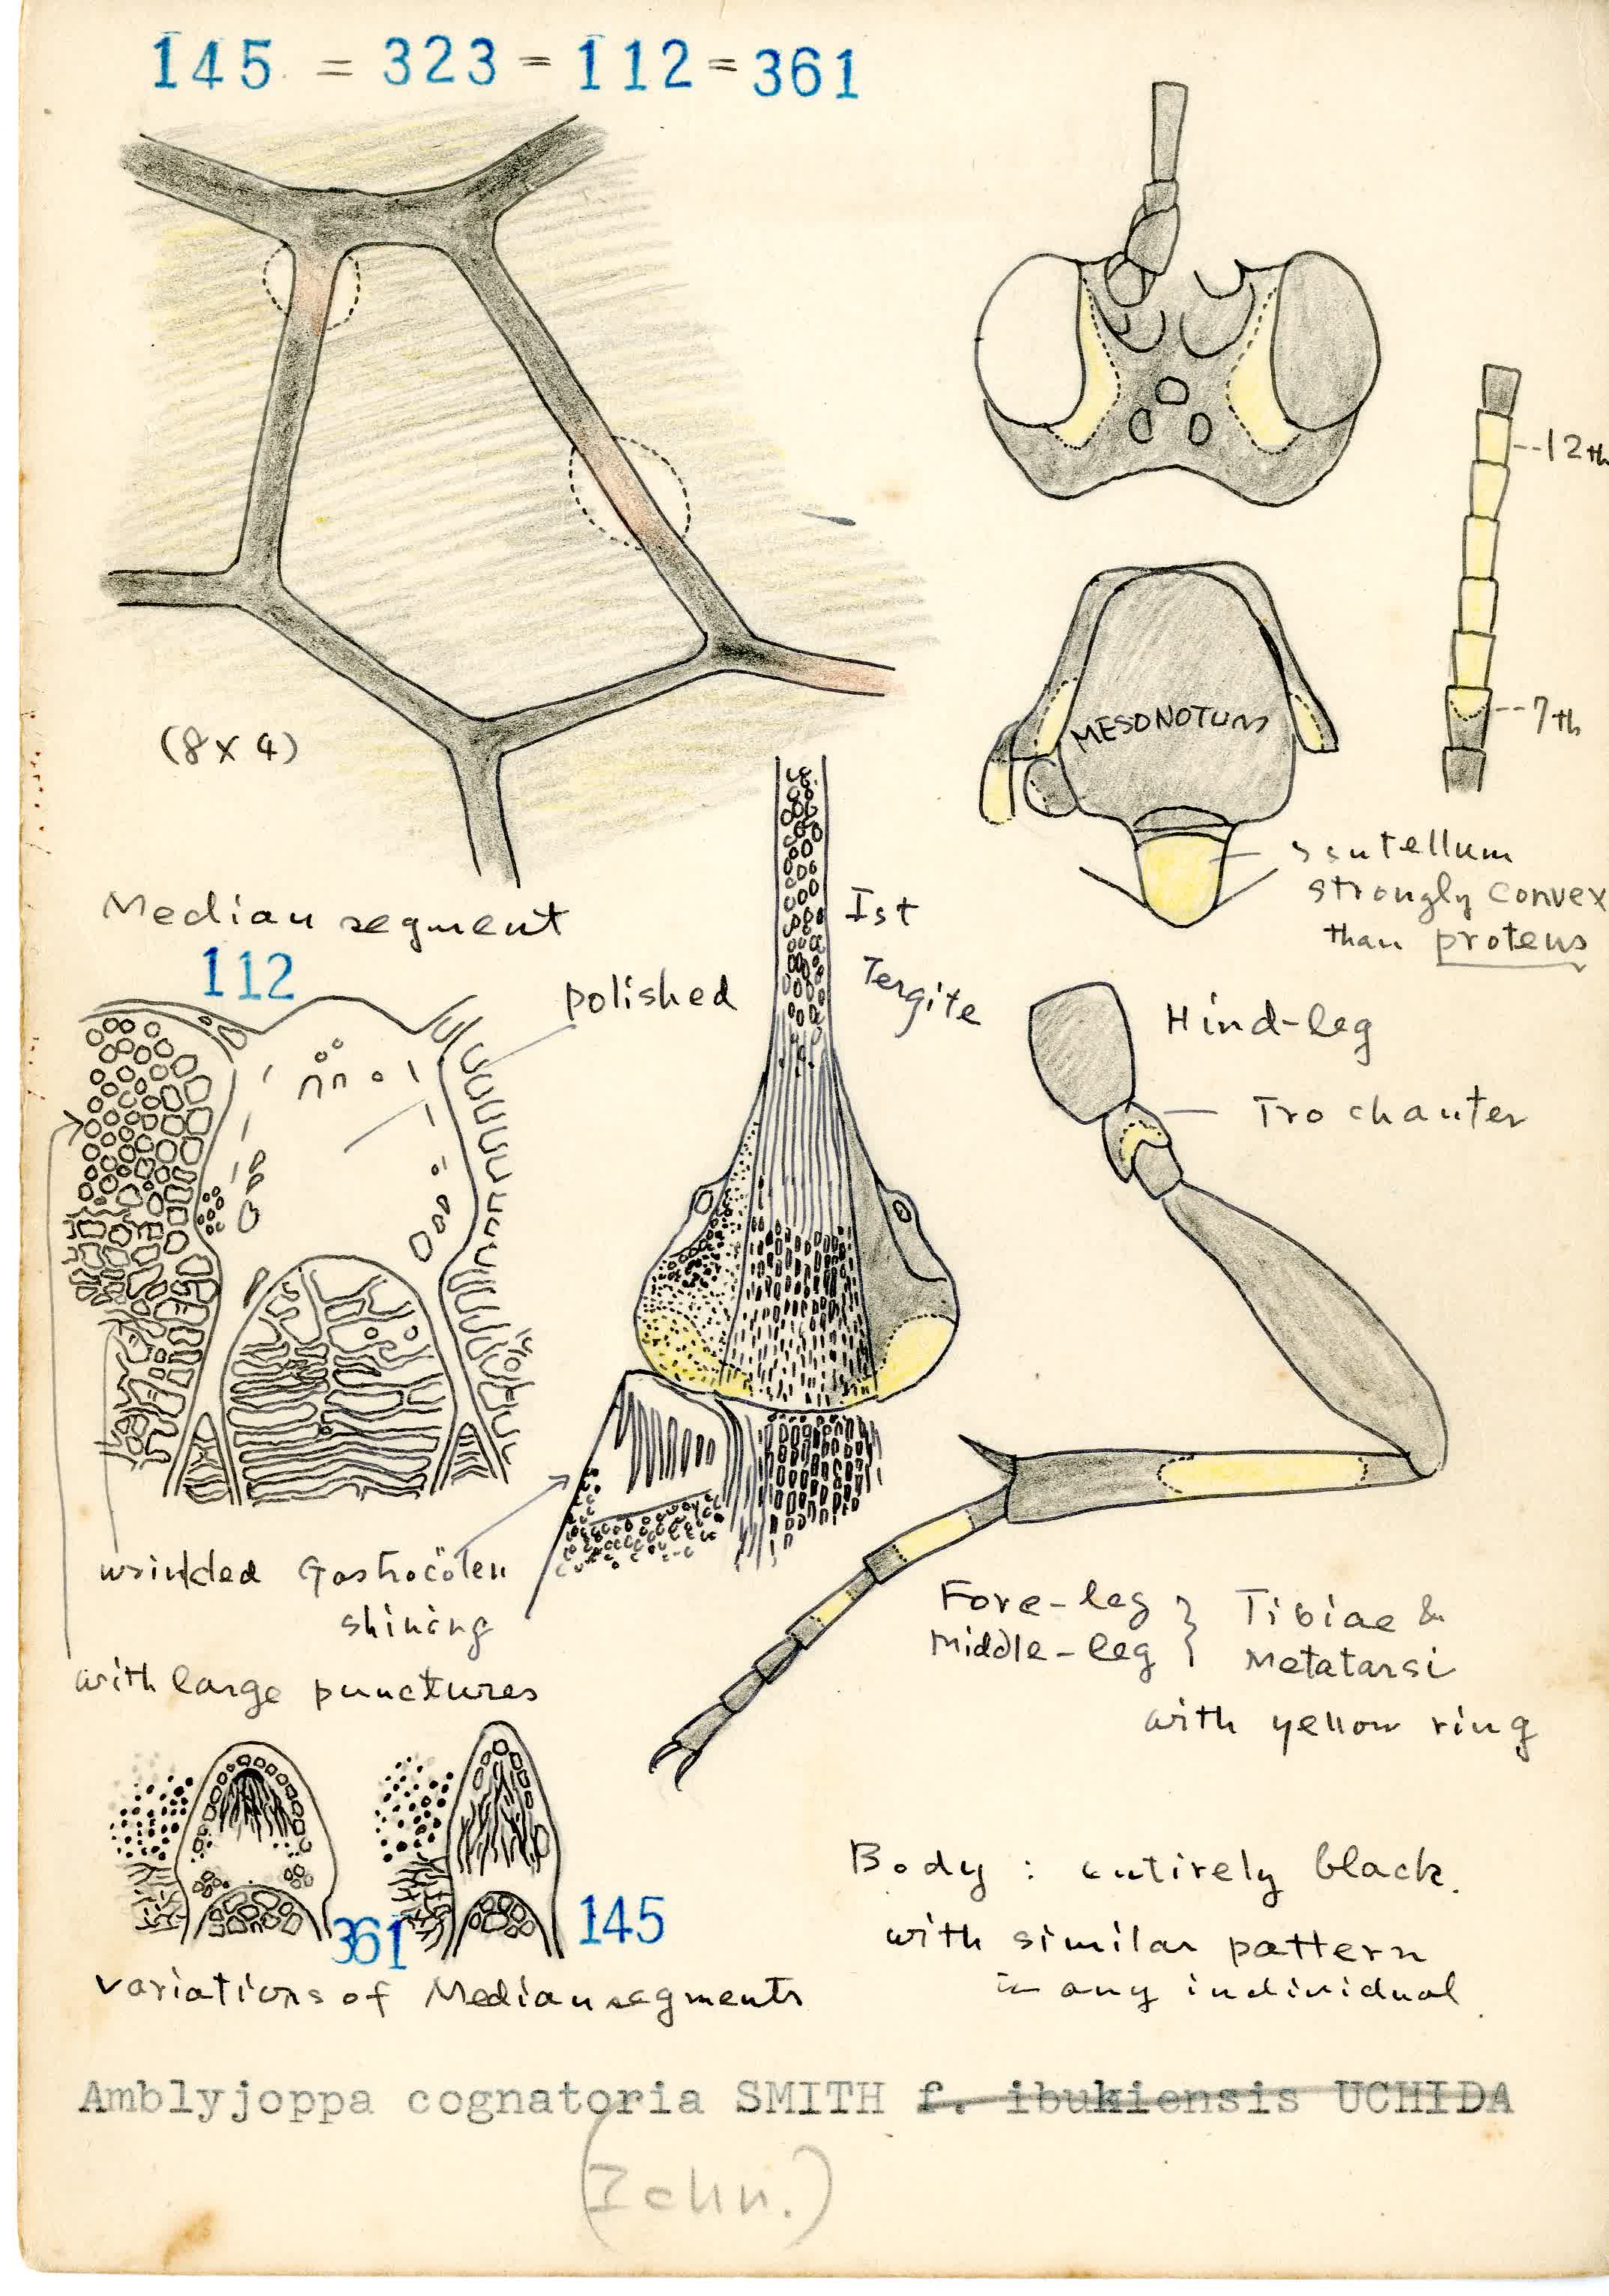 145 = 323 = 112 = 361
12th
7th
MESONOTUM
(8 x 4)
scutellum
strongly convex
than proteus
Median segment
112
polished
Ist
Tergite
Hind-leg
Trochanter
wrinkled Gastrocölen
shining
with large punctures
Fore-leg } Tibiae &
Middle-leg } Metatarsi
with yellow ring
361
145
variations of Median segments
Body : entirely black.
with similar pattern
in any individual.
Amblyjoppa cognatoria SMITH f. ibukiensis UCHIDA
(Ichn.)